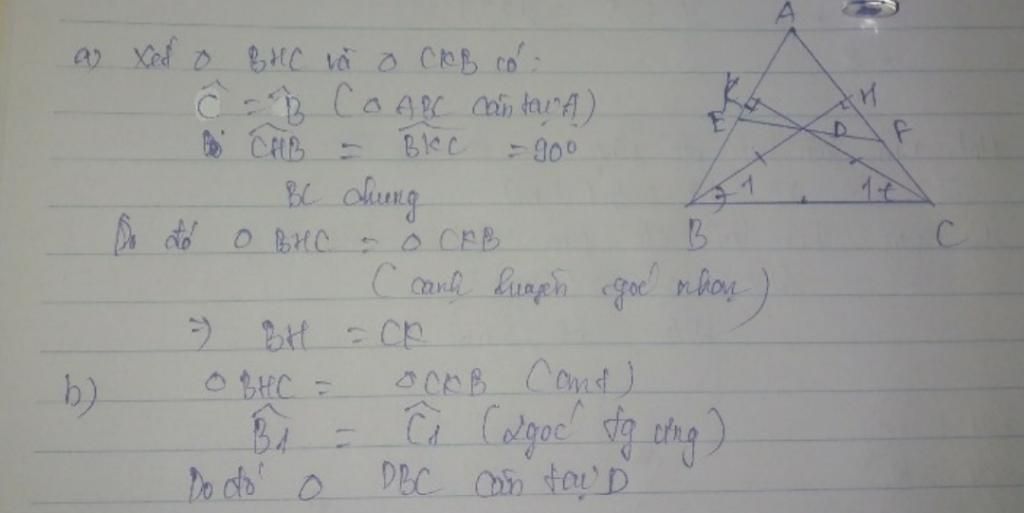 a) Xét △ BHC và △ CKB có:
Ĉ = B̂ (△ ABC cân tại A)
CHB̂ = BKĈ = 90°
BC chung
Do đó △ BHC = △ CKB
(cạnh huyền góc nhọn)
=> BH = CK
b) △ BHC = △ CKB (cmt)
B̂1 = Ĉ1 (2 góc tg ứng)
Do đó △ DBC cân tại D
A
K
H
E
D
F
1
1
B
C